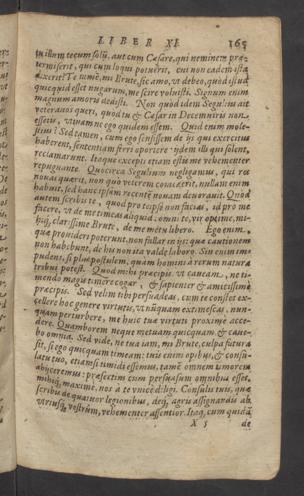 LIBER XI. 365
tu illum tecum solū, aut cum Cæsare, qui neminem præ-
termiserit, qui cum loqui potuerit, cui non eadem ista
dixerit? Te tamē, mi Brute, sic amo, vt debeo, quòd istud
quicquid esset nugarum, me scire voluisti. Signum enim
magnum amoris dedisti. Non quòd idem Segulius ait
veteranos queri, quòd tu & Cæsar in Decemuiris non
essetis, vtinam ne ego quidem essem. Quid enim mole-
stius? Sed tamen, cum ego sensissem de iis qui exercitus
haberent, sententiam ferri oportere ijdem illi qui solent,
reclamarunt. Itaque excepti etiam estis me vehementer
repugnante. Quocirca Segulium negligamus, qui res
nouas quærit, non quò veterem comederit, nullam enim
habuit, sed hanc ipsam recentē nouam deuorauit. Quòd
autem scribis te, quod pro te ipso non facias, id pro me
facere, vt de me timeas aliquid: omni te, vir optime, mi-
hiq́; clarissime Brute, de me metu libero. Ego enim,
quæ prouideri poterunt, non fallar in iis: quæ cautionem
non habebunt, de his non ita valde laboro. Sim enim im-
pudens, si plus postulem, quàm homini à rerum natura
tribui potest. Quòd mihi præcipis vt caueam, ne ti-
mendo magis timere cogar, & sapienter & amicissimè
præcipis. Sed velim tibi persuadeas, cum te constet ex-
cellere hoc genere virtutis, vt nunquam extimescas, nun-
quam perturbere, me huic tuæ virtuti proximè acce-
dere. Quamobrem neque metuam quicquam, & caue-
bo omnia. Sed vide, ne tua iam, mi Brute, culpa futura
sit, si ego quicquam timeam: tuis enim opibus, & consu-
latu tuo, etiamsi timidi essemus, tamē omnem timorem
abijceremus: præsertim cum persuasum omnibus esset,
mihiq́; maximè, nos à te vnicè diligi. Consiliis tuis, quæ
scribis de quatuor legionibus, deq́; agris assignandis ab
vtrisq́; vestrûm, vehementer assentior. Itaq́; cum quidā
X 5 de